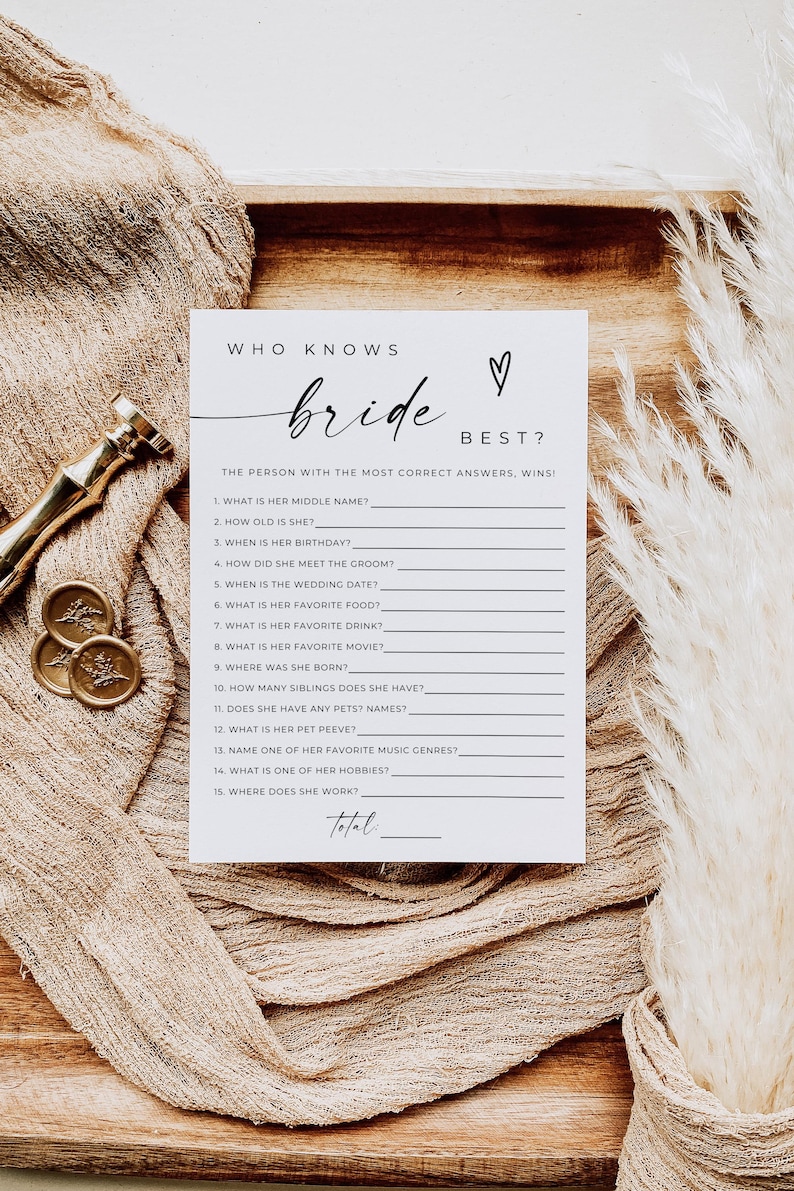 WHO KNOWS
bride
BEST?
THE PERSON WITH THE MOST CORRECT ANSWERS, WINS!
1. WHAT IS HER MIDDLE NAME?
2. HOW OLD IS SHE?
3. WHEN IS HER BIRTHDAY?
4. HOW DID SHE MEET THE GROOM?
5. WHEN IS THE WEDDING DATE?
6. WHAT IS HER FAVORITE FOOD?
7. WHAT IS HER FAVORITE DRINK?
8. WHAT IS HER FAVORITE MOVIE?
9. WHERE WAS SHE BORN?
10. HOW MANY SIBLINGS DOES SHE HAVE?
11. DOES SHE HAVE ANY PETS? NAMES?
12. WHAT IS HER PET PEEVE?
13. NAME ONE OF HER FAVORITE MUSIC GENRES?
14. WHAT IS ONE OF HER HOBBIES?
15. WHERE DOES SHE WORK?
total: